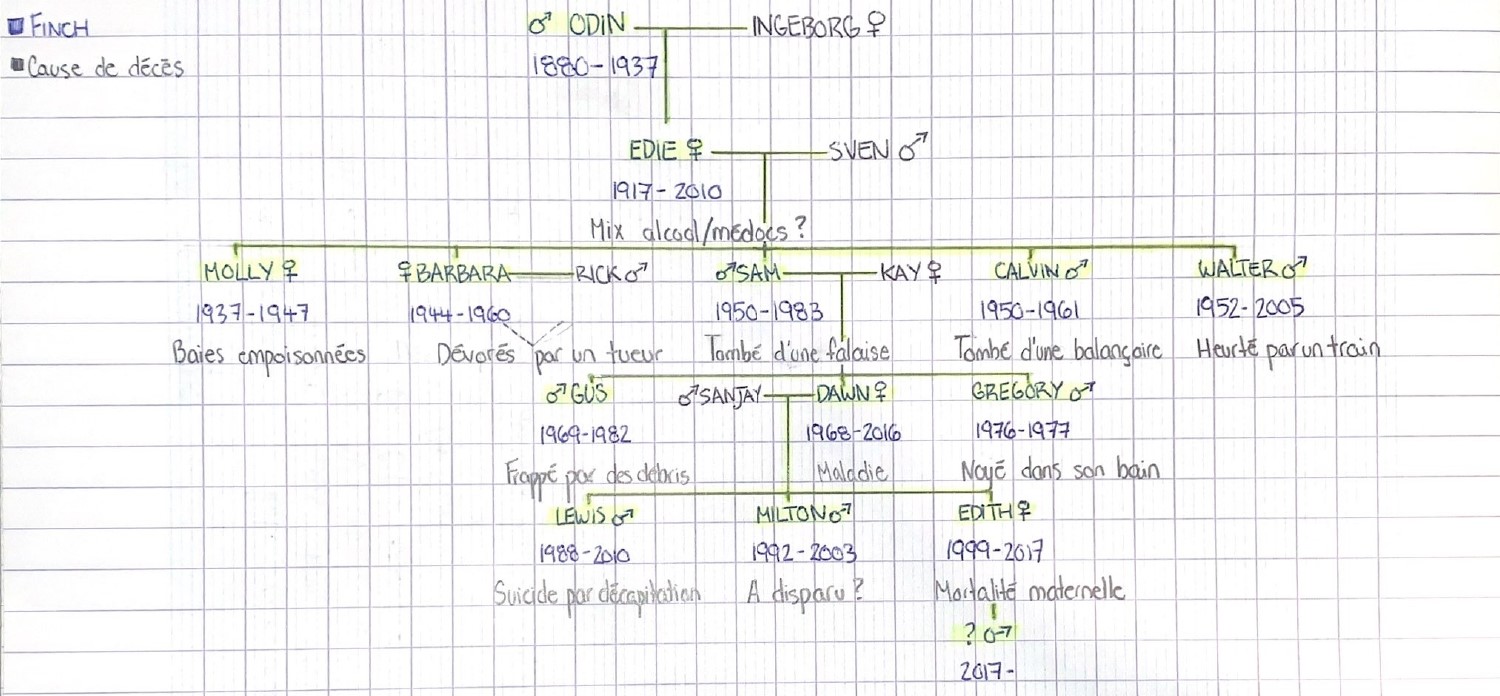 FINCH
♂ ODIN INGEBORG ♀
Cause de décès
1880-1937
EDIE ♀ SVEN ♂
1917-2010
Mix alcool/médocs ?
MOLLY ♀ ♀ BARBARA RICK ♂ ♂ SAM KAY ♀ CALVIN ♂ WALTER ♂
1937-1947 1944-1960 1950-1983 1950-1961 1952-2005
Baies empoisonnées Dévorés par un tueur Tombé d'une falaise Tombé d'une balançoire Heurté par un train
♂ GUS ♂ SANJAY DAWN ♀ GREGORY ♂
1969-1982 1968-2016 1976-1977
Frappé par des débris Maladie Noyé dans son bain
LEWIS ♂ MILTON ♂ EDITH ♀
1988-2010 1992-2003 1999-2017
Suicide par décapitation A disparu ? Mortalité maternelle
? ♂
2017-